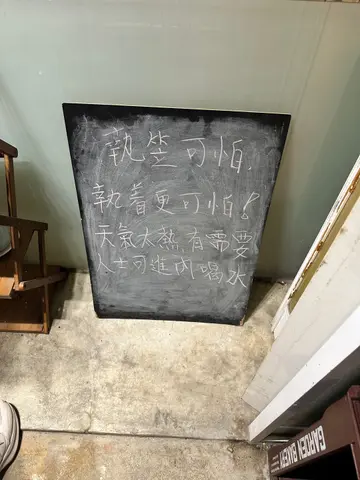 執笠可怕,
執着更可怕!
天氣太熱有需要
人士可進內喝水
GARDEN BAKERY